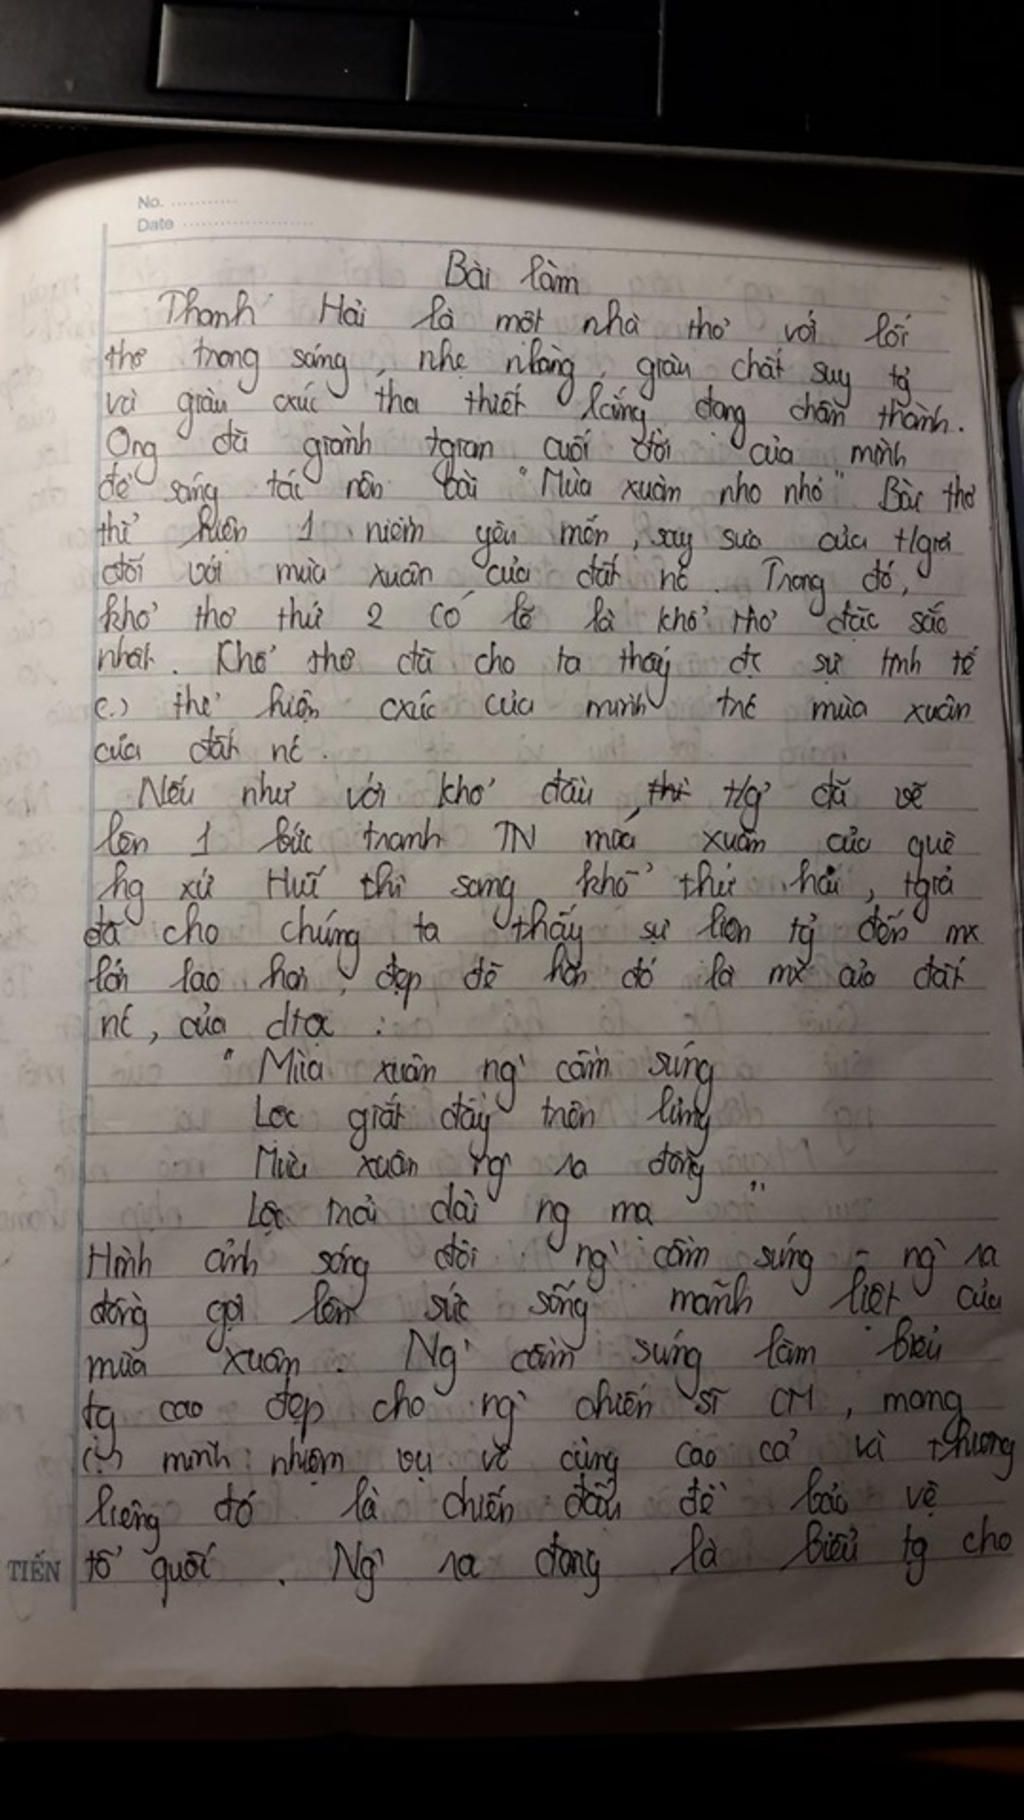 No.
Date
Bài làm
Thanh Hải là một nhà thơ với lối
thơ trong sáng, nhẹ nhàng, giàu chất suy tg
và giàu cxúc tha thiết lắng đọng chân thành.
Ông đã giành tgian cuối đời của mình
để sáng tác nên bài "Mùa xuân nho nhỏ" Bài thơ
thể hiện 1 niềm yêu mến, say sưa của t/giả
đối với mùa xuân của đất nc. Trong đó,
khổ thơ thứ 2 có lẽ là khổ thơ đặc sắc
nhất. Khổ thơ đã cho ta thấy đc sự tinh tế
(.) thể hiện cxúc của mình trc mùa xuân
của đất nc.
Nếu như với khổ đầu thì t/g đã vẽ
lên 1 bức tranh TN mùa xuân của quê
hg xứ Huế thì sang khổ thứ hai, tgiả
đã cho chúng ta thấy sự liên tg đến mx
lớn lao hơn, đẹp đẽ hơn đó là mx của đất
nc, của :
"Mùa xuân ng cầm súng
Lộc giắt đầy trên lưng
Mùa xuân ng ra đồng
Lộc trải dài ng mạ"
Hình ảnh sóng đôi ng cầm súng - ng ra
đồng gợi lên sức sống mãnh liệt của
mùa xuân. Ng cầm súng làm biểu
tg cao đẹp cho ng chiến sĩ CM, mang
(.) mình nhiệm vụ vô cùng cao cả và thiêng
liêng đó là chiến đấu để bảo vệ
tổ quốc. Ng ra đồng là biểu tg cho
TIẾN